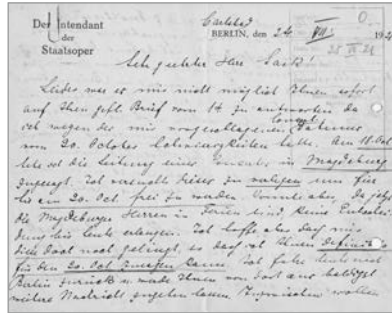 Der Intendant
der
Staatsoper
Carlsbad
BERLIN, den 24 VIII 192
0.
28 VIII 24
Sehr geehrter Herr Sack!
Leider war es mir nicht möglich Ihnen sofort
auf Ihren gefl. Brief vom 14 zu antworten da
ich wegen der mir vorgeschlagenen
vom 20. October Schwierigkeiten hatte. Am 18. Oct
die Leitung eines Concerts in Magdeburg
zugesagt. Ich versuchte dieses zu verlegen um für
bis am 20. Oct. frei zu werden. Konnte aber, da jetzt
die Magdeburger Herren in Ferien sind keine
bis heute erlangen. Ich hoffe aber dass mir
dies doch noch gelingt, so dass ich Ihnen definitiv
für den 20. Oct zusagen kann. Ich fahre heute nach
Berlin zurück u. werde Ihnen von dort aus baldigst
weitere Nachricht zugehen lassen. Inzwischen wollen